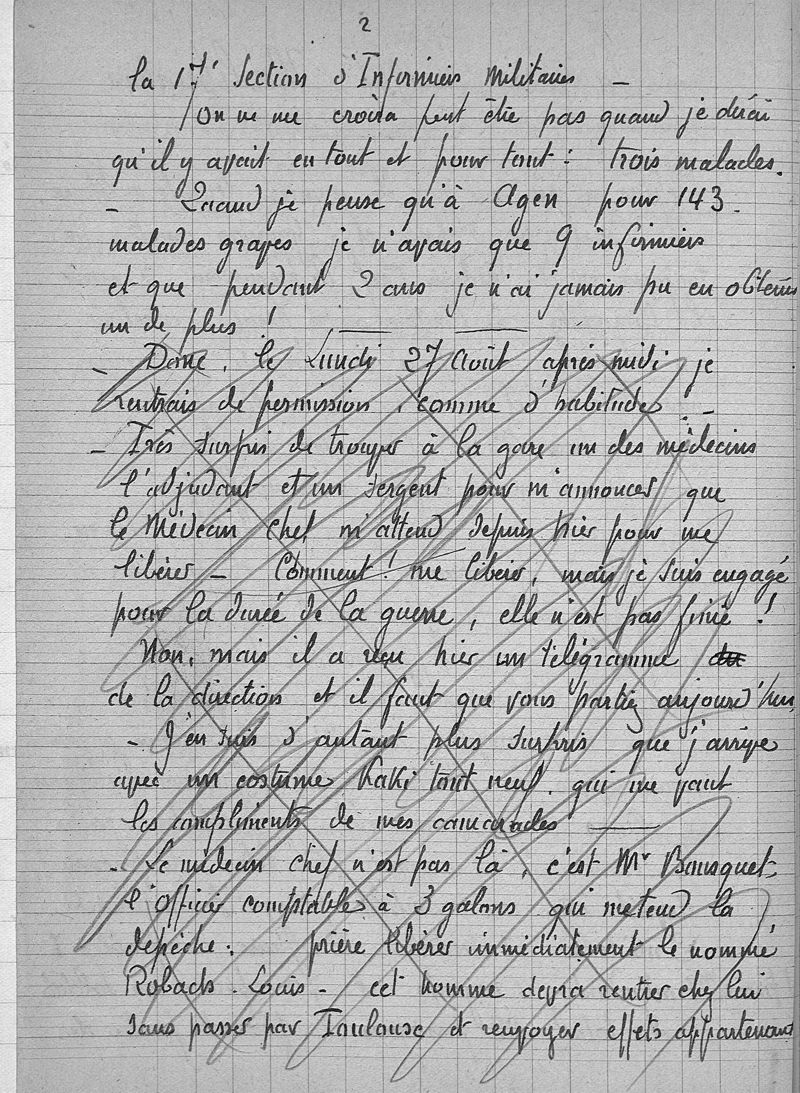 2
la 17e Section d'Infirmiers militaires –
On ne me croira peut être pas quand je dirai
qu'il y avait en tout et pour tout : trois malades.
– Quand je pense qu'à Agen pour 143
malades graves je n'avais que 9 infirmiers
et que pendant 2 ans je n'ai jamais pu en obtenir
un de plus !
– Donc, le Lundi 27 Août après midi je
rentrais de permission, comme d'habitude –
– Très surpris de trouver à la gare un des médecins
l'adjudant et un sergent pour m'annoncer que
le Médecin chef m'attend depuis hier pour me
libérer – Comment ! me libérer, mais je suis engagé
pour la durée de la guerre, elle n'est pas finie !
Non, mais il a reçu hier un télégramme
de la direction et il faut que vous partiez aujourd'hui,
– J'en suis d'autant plus surpris que j'arrive
avec un costume Kaki tout neuf qui me vaut
les compliments de mes camarades
– Le médecin chef n'est pas là, c'est Mr Bousquet
l'officier comptable à 3 galons qui me tend la
dépêche : prière libérer immédiatement le nommé
Robach Louis – cet homme devra rentrer chez lui
sans passer par Toulouse et renvoyer effets appartenant